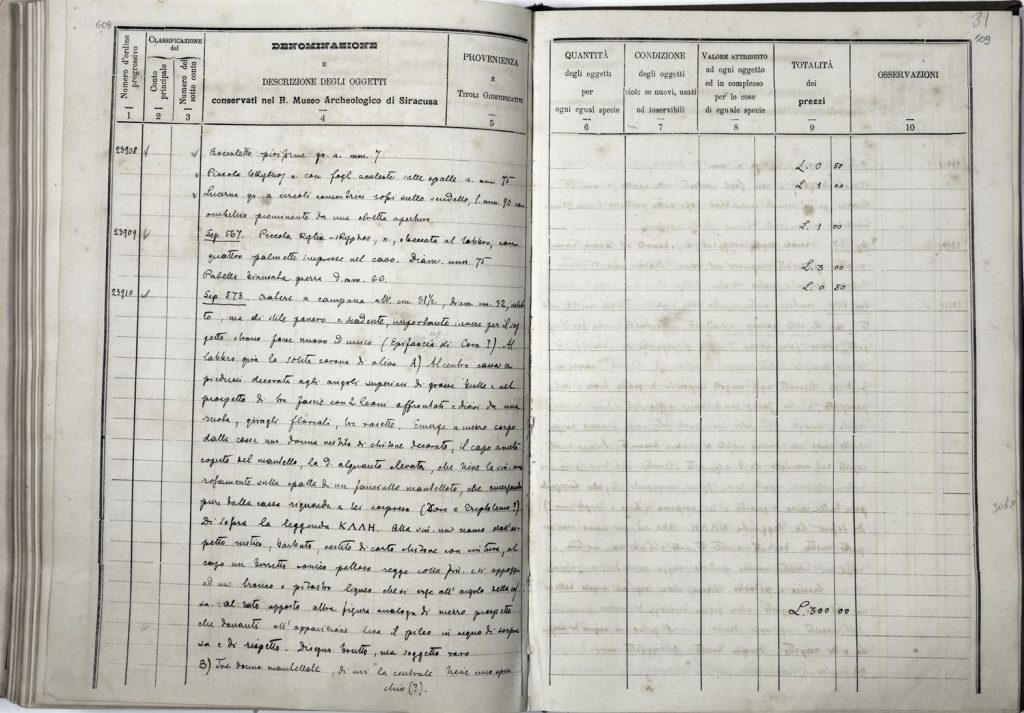 608
Numero d'ordine progressivo
CLASSIFICAZIONE del
Conto principale
Numero del sotto conto
DENOMINAZIONE
E
DESCRIZIONE DEGLI OGGETTI
conservati nel R. Museo Archeologico di Siracusa
PROVENIENZA
E
TITOLI GIUSTIFICATIVI
1 2 3 4 5
23908 Boccaletto piriforme gr. a. mm. 7
Piccola lekythos n. con fogl. aculeate sulle spalle a. mm. 75
Lucerna gr. a circoli concentrici sullo scudetto, l. mm. 90 con
ombelico prominente da una stretta apertura.
23909 Sep. 567. Piccola kylix-skyphos, n., sbeccata al labbro, con
quattro palmette impresse nel cavo. Diam. mm. 75
Patella grezza d. mm. 66.
23910 Sep. 573. cratere a campana alt. cm. 31½, diam. cm. 32,
to, ma di stile povero e scadente, importante invece per il sog
getto strano forse nuovo ed unico (Epifania di Cora?) Al
labbro gira la solita corona di olivo A) Al centro cassa a
pieducci decorata agli angoli superiori di grosse bulle e nel
prospetto di tre fascie con 2 leoni affrontati e divisi da una
ruota, giragli floreali, tre rosette. Emerge a mezzo corpo
dalla cassa una donna vestita di chitone decorato, il capo
coperto del mantello, la d. alquanto elevata, che tiene la sin. amo
rosamente sulla spalla di un fanciullo mantellato, che emergendo
pure dalla cassa riguarda a lei sorpreso (Core e Triptolemo?).
Di sopra la leggenda ΚΑΛΗ. Alla sin. un uomo dall'as-
petto rustico, barbuto, vestito di corto chitone con cintura, al
capo un berretto conico pelloso regge colla e si appoggia
ad un tronco o pilastro ligneo che si erge all'angolo della cas
sa. Al lato opposto altra figura analoga di mezzo prospetto
che davanti all'apparizione leva il pileo in segno di sorpre
sa e di rispetto. Disegno brutto, ma soggetto raro
B) Tre donne mantellate, di cui la centrale tiene uno spec
chio (?).
31
609
QUANTITÀ
degli oggetti
per
ogni egual specie
CONDIZIONE
degli oggetti
cioè: se nuovi, usati
od inservibili
VALORE ATTRIBUITO
ad ogni oggetto
ed in complesso
per le cose
di eguale specie
TOTALITÀ
dei
prezzi
OSSERVAZIONI
6 7 8 9 10
L. 0 50
L. 1 00
L. 1 00
L. 3 00
L. 0 50
L. 300 00